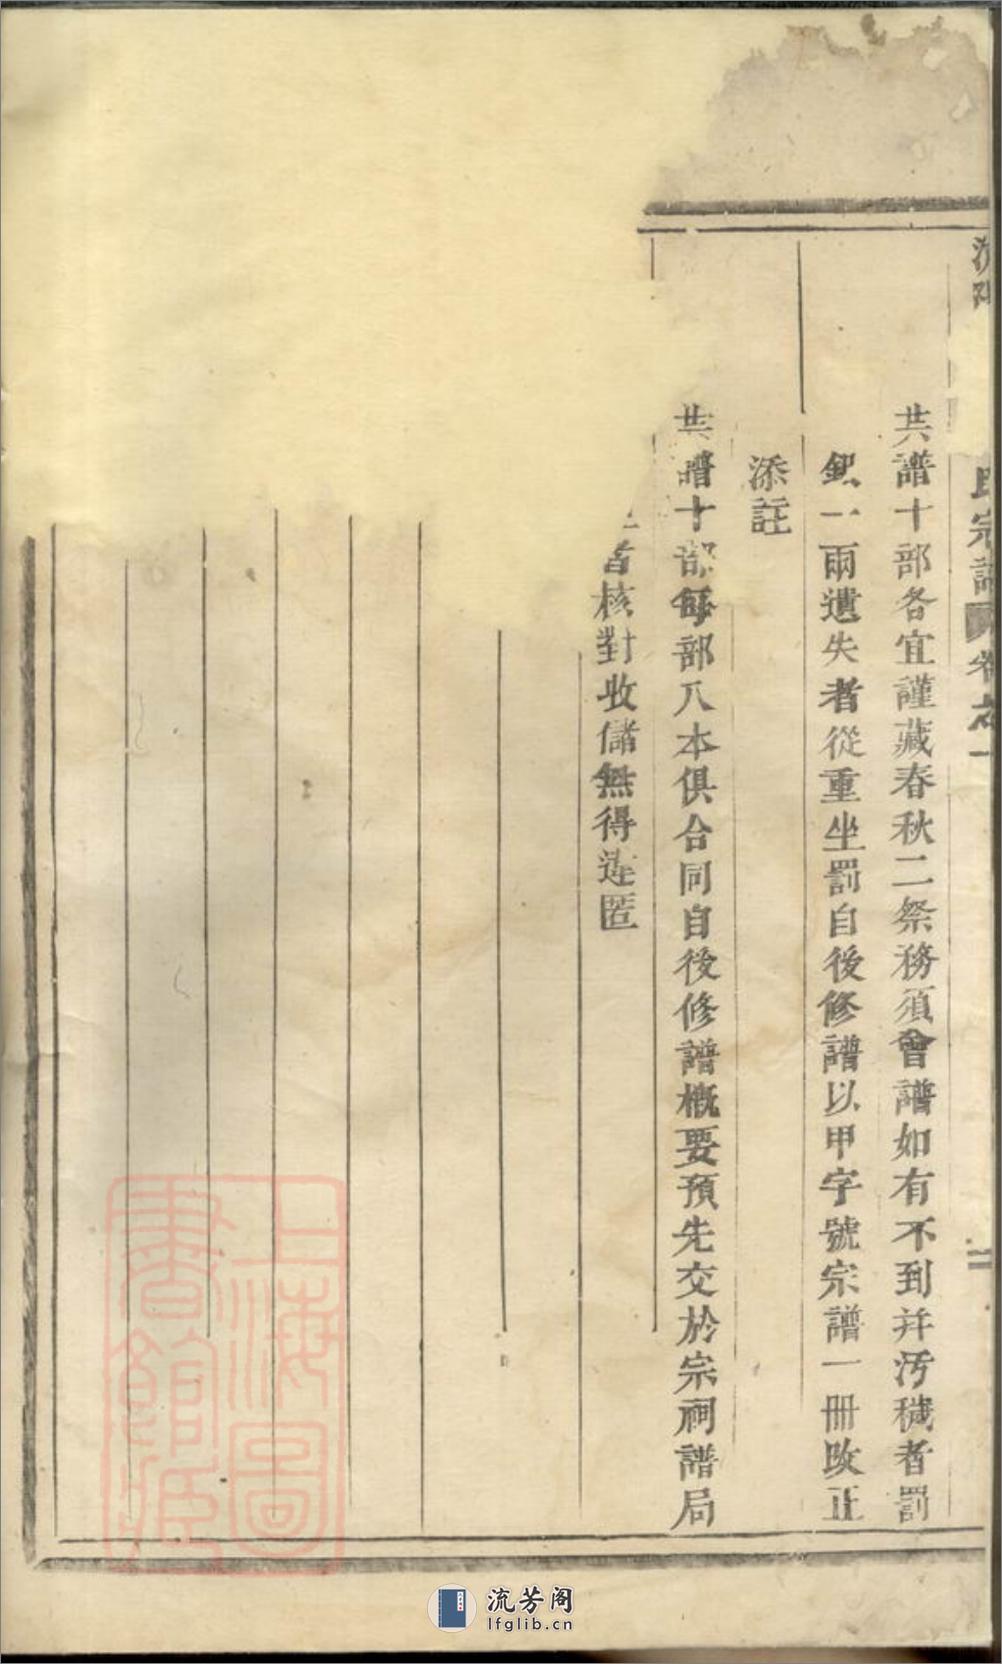 氏宗譜 卷之一
二
共譜十部各宜謹藏春秋二祭務須會譜如有不到并污穢者罰
銀一兩遺失者從重坐罰自後修譜以甲字號宗譜一冊改正
添註
共譜十部每部八本俱合同自後修譜概要預先交於宗祠譜局
者核對收儲無得違匿
上海圖書館藏
流芳阁
lfglib.cn